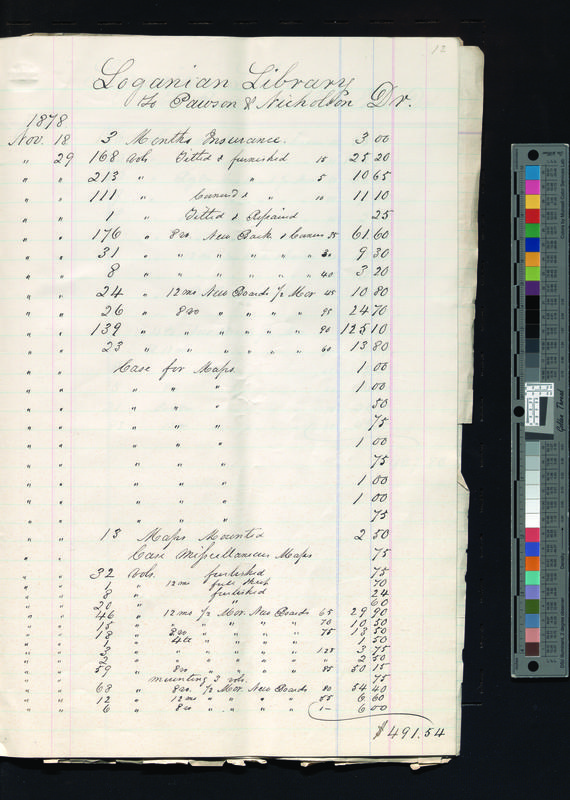 12
Loganian Library
To Pawson & Nicholson Dr.
1878
Nov. 18 3 Months Insurance. 3 00
" 29 168 Vols Titled & furnished 15 25 20
" " 213 " " " 5 10 65
" " 111 " Corner'd & " 10 11 10
" " 1 " Titled & Repaired 25
" " 176 " 8vo. New Back & Corners 35 61 60
" " 31 " " " " " " 30 9 30
" " 8 " " " " " " 40 3 20
" " 24 " 12mo New Boards 1/2 Mor 45 10 80
" " 26 " 8vo " " " " 95 24 70
" " 139 " " " " " " 90 125 10
" " 23 " " " " " " 60 13 80
" " Case for Maps 1 00
" " " " " 1 00
" " " " " 50
" " " " " 75
" " " " " 1 00
" " " " " 75
" " " " " 1 00
" " " " " 1 00
" " " " " 75
" " 13 Maps Mounted 2 50
" " Case Miscellaneous Maps 75
" " 32 Vols. furbished 75
" " 1 " 12mo full Sheep 70
" " 8 " furbished 24
" " 20 " " 60
" " 46 " 12mo 1/2 Mor. New Boards 65 29 90
" " 15 " " " " " " 70 10 50
" " 18 " 8vo " " " " 75 13 50
" " 1 " 4to " " " " 1 50
" " 3 " " " " " " 125 3 75
" " 2 " " " " " " 2 50
" " 59 " 8vo " " " " 85 50 15
" " mounting 3 vols. 75
" " 68 " 8vo. 1/2 Mor. New Boards 80 54 40
" " 12 " 12mo " " " " 55 6 60
" " 6 " 8vo " " " " 1- 6 00
$491.54